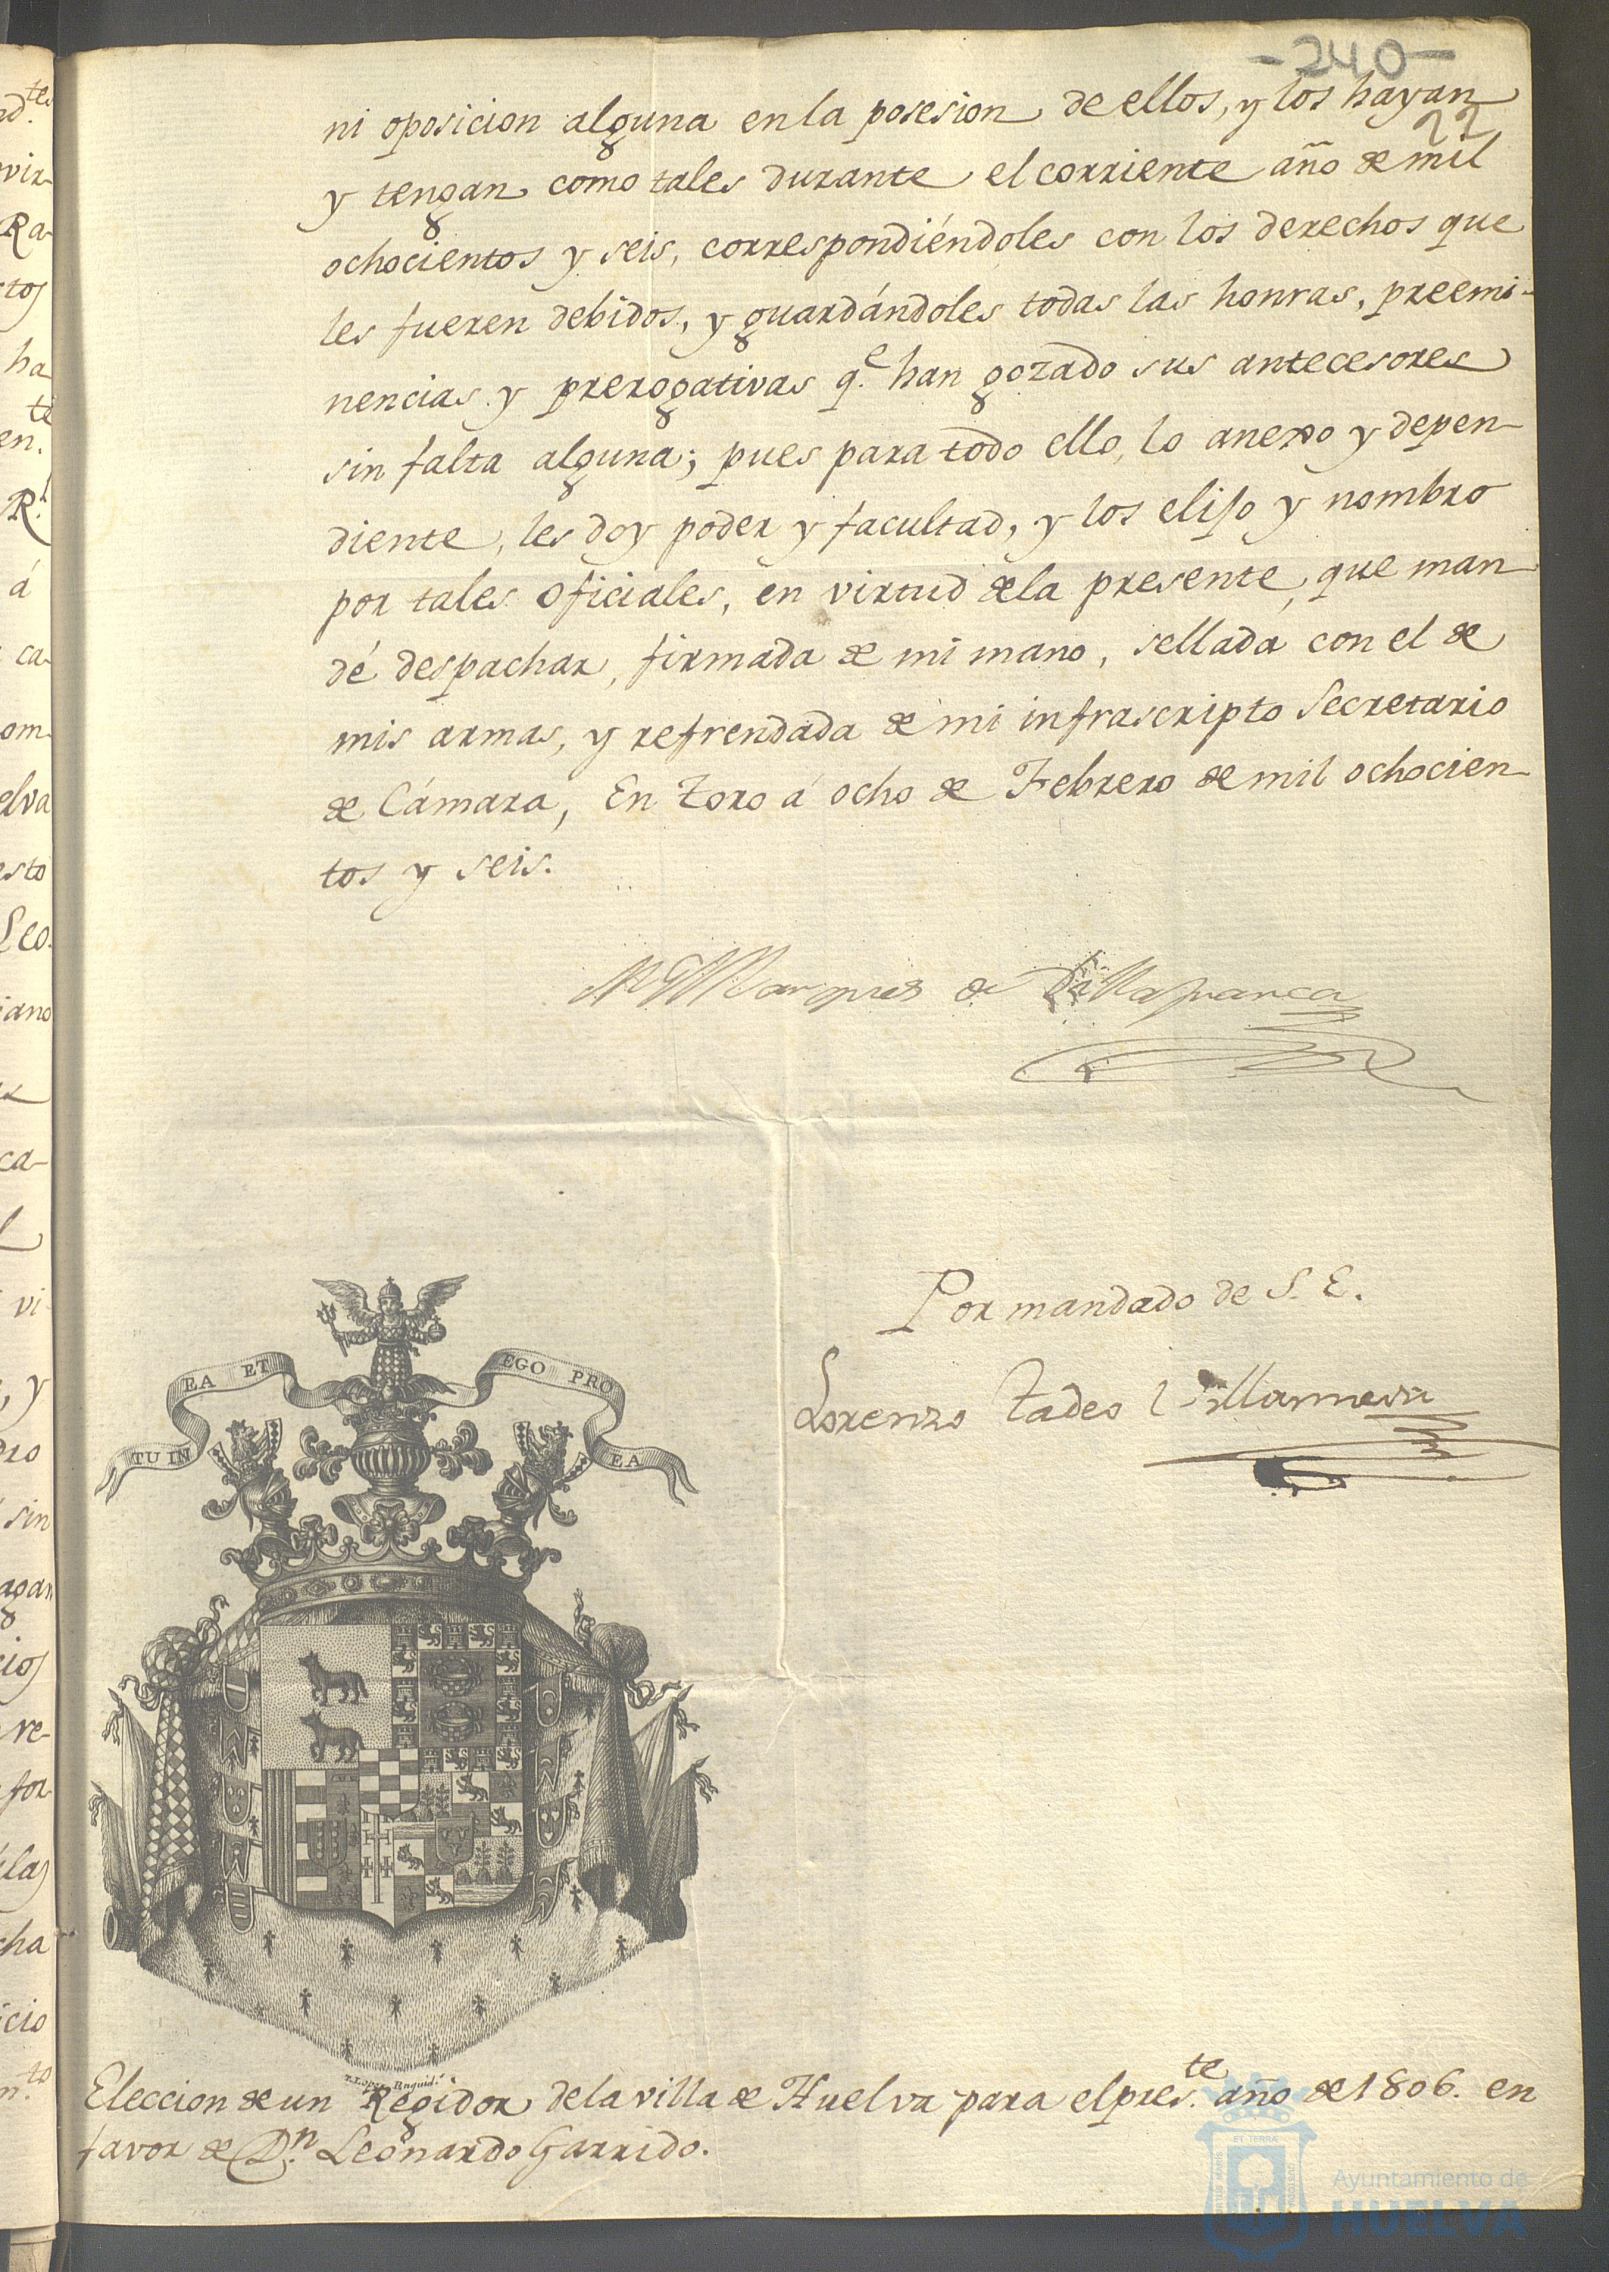 -240-
22
ni oposicion alguna en la posesion de ellos, y los hayan
y tengan como tales durante el corriente año de mil
ochocientos y seis, correspondiéndoles con los derechos que
les fueren debidos, y guardándoles todas las honras, preemi-
nencias y prerogativas q.e han gozado sus antecesores
sin falta alguna; pues para todo ello, lo anexo y depen-
diente, les doy poder y facultad, y los elijo y nombro
por tales Oficiales, en virtud de la presente, que man
dé despachar, firmada de mi mano, sellada con el de
mis armas, y refrendada de mi infrascripto Secretario
de Cámara, En Toro á ocho de Febrero de mil ochocien-
tos y seis.
Marques de Villafranca
Por mandado de S. E.
Lorenzo Tadeo Villanueva
TU IN EA ET EGO PRO EA
Eleccion de un Regidor de la villa de Huelva para el pres.te año de 1806. en
favor de D.n Leonardo Garrido.
Ayuntamiento de
HUELVA